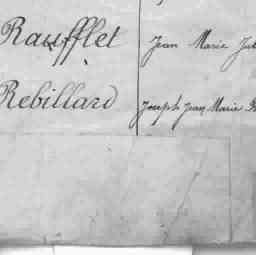 Raufflet Jean Marie
Rebillard Joseph Jean Marie